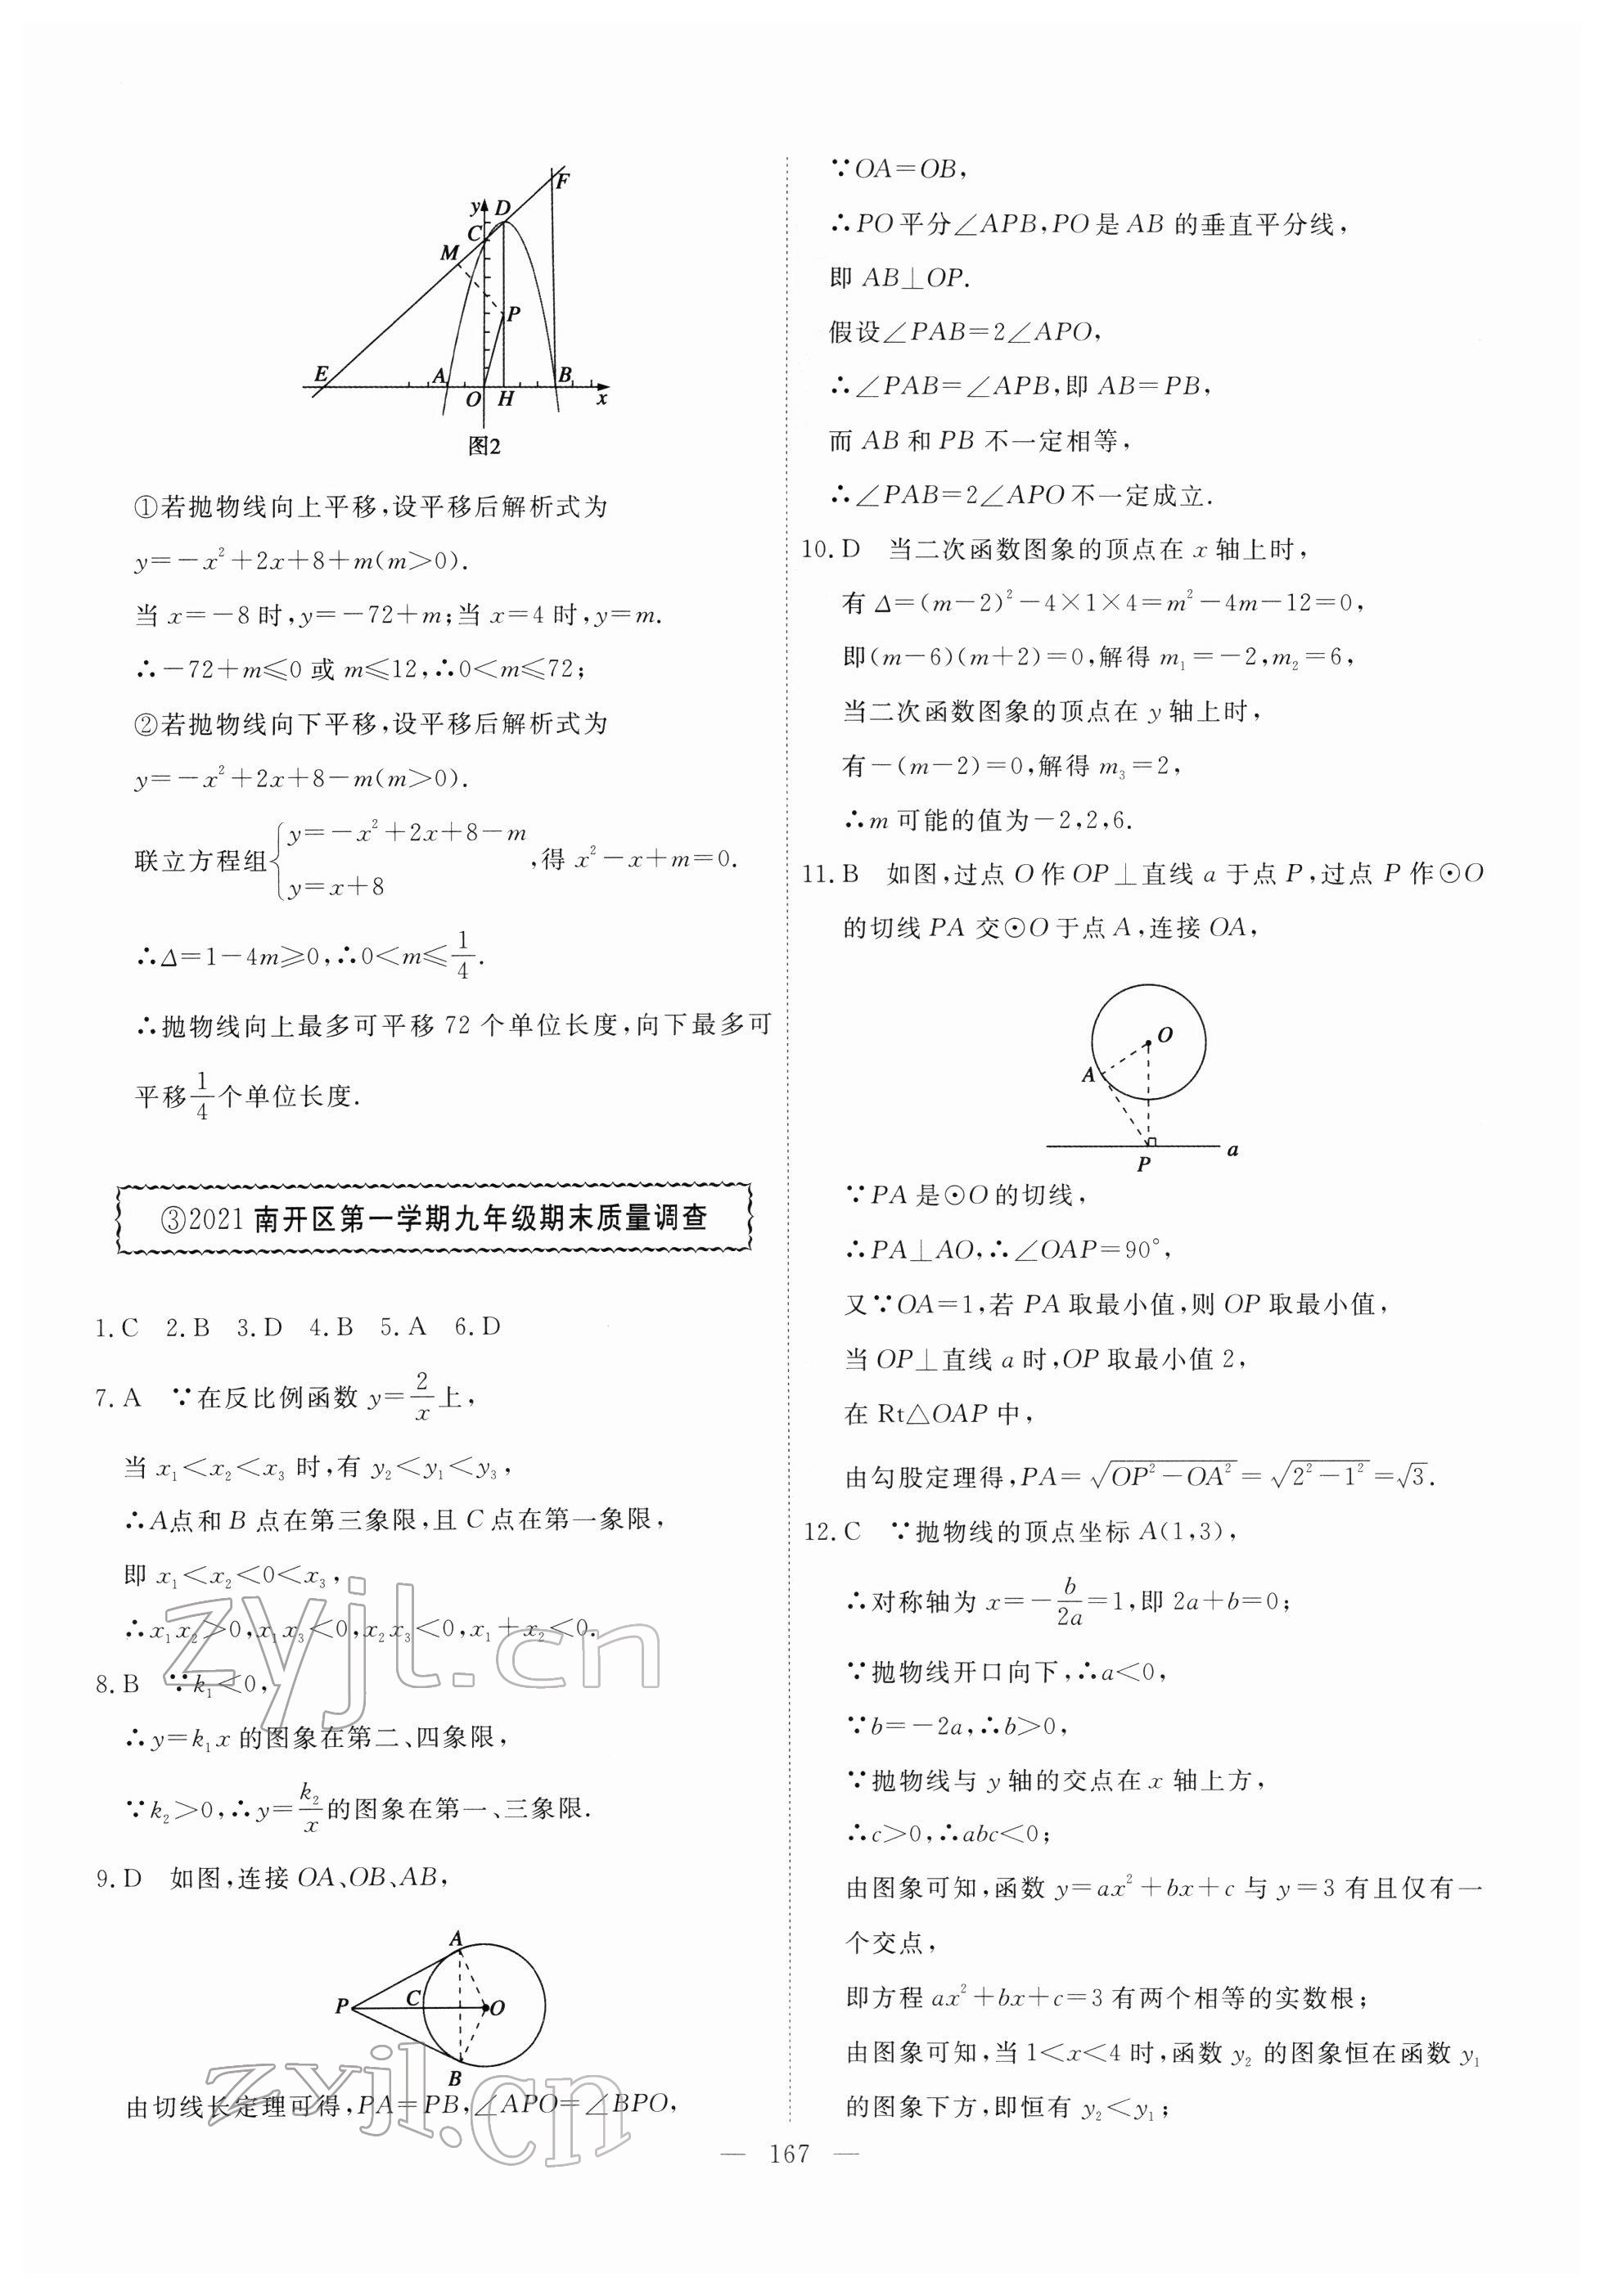 y
D
F
C
M
P
E
A
B
O
H
x
图2
①若抛物线向上平移,设平移后解析式为
y=-x²+2x+8+m(m>0).
当 x=-8 时,y=-72+m;当 x=4 时,y=m.
∴-72+m≤0 或 m≤12,∴0<m≤72;
②若抛物线向下平移,设平移后解析式为
y=-x²+2x+8-m(m>0).
联立方程组{y=-x²+2x+8-m
y=x+8
,得 x²-x+m=0.
∴Δ=1-4m≥0,∴0<m≤1/4.
∴抛物线向上最多可平移 72 个单位长度,向下最多可
平移1/4个单位长度.
③2021 南开区第一学期九年级期末质量调查
1.C 2.B 3.D 4.B 5.A 6.D
7.A ∵在反比例函数 y=2/x上,
当 x₁<x₂<x₃ 时,有 y₂<y₁<y₃,
∴A点和 B 点在第三象限,且 C 点在第一象限,
即 x₁<x₂<0<x₃,
∴x₁x₂>0,x₁x₃<0,x₂x₃<0,x₁+x₂<0.
8.B ∵k₁<0,
∴y=k₁x 的图象在第二、四象限,
∵k₂>0,∴y=k₂/x的图象在第一、三象限.
9.D 如图,连接 OA、OB、AB,
A
P
C
O
B
由切线长定理可得,PA=PB,∠APO=∠BPO,
∵OA=OB,
∴PO平分∠APB,PO是 AB 的垂直平分线,
即 AB⊥OP.
假设∠PAB=2∠APO,
∴∠PAB=∠APB,即 AB=PB,
而 AB 和 PB 不一定相等,
∴∠PAB=2∠APO不一定成立.
10.D 当二次函数图象的顶点在 x 轴上时,
有 Δ=(m-2)²-4×1×4=m²-4m-12=0,
即(m-6)(m+2)=0,解得 m₁=-2,m₂=6,
当二次函数图象的顶点在 y 轴上时,
有-(m-2)=0,解得 m₃=2,
∴m 可能的值为-2,2,6.
11.B 如图,过点 O 作 OP⊥直线 a 于点 P,过点 P 作⊙O
的切线 PA 交⊙O于点 A,连接 OA,
O
A
P
a
∵PA 是⊙O的切线,
∴PA⊥AO,∴∠OAP=90°,
又∵OA=1,若 PA 取最小值,则 OP 取最小值,
当 OP⊥直线 a 时,OP 取最小值 2,
在 Rt△OAP 中,
由勾股定理得,PA=√(OP²-OA²)=√(2²-1²)=√3.
12.C ∵抛物线的顶点坐标 A(1,3),
∴对称轴为 x=-b/2a=1,即 2a+b=0;
∵抛物线开口向下,∴a<0,
∵b=-2a,∴b>0,
∵抛物线与 y 轴的交点在 x 轴上方,
∴c>0,∴abc<0;
由图象可知,函数 y=ax²+bx+c 与 y=3 有且仅有一
个交点,
即方程 ax²+bx+c=3 有两个相等的实数根;
由图象可知,当 1<x<4 时,函数 y₂ 的图象恒在函数 y₁
的图象下方,即恒有 y₂<y₁;
— 167 —
zyjl.cn
zyjl.cn